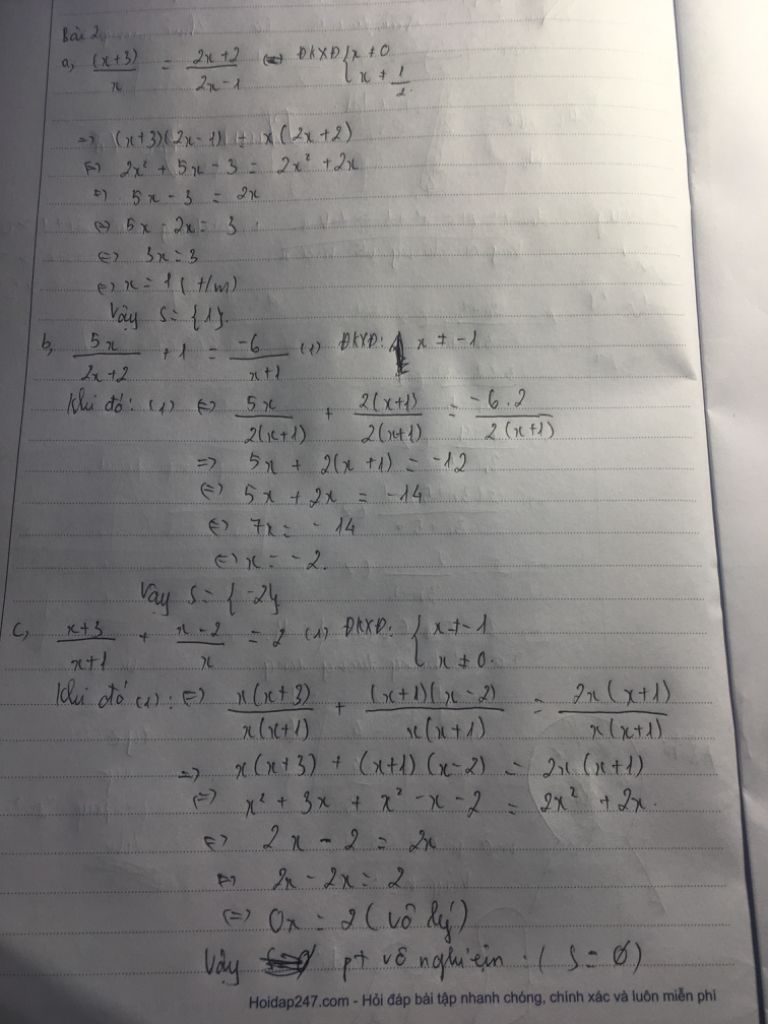 Bài 2
a, (x+3)/x = (2x+2)/(2x-1) <=> ĐKXĐ { x ≠ 0
x ≠ 1/2
=> (x+3)(2x-1) = x(2x+2)
<=> 2x² + 5x - 3 = 2x² + 2x
<=> 5x - 3 = 2x
<=> 5x - 2x = 3
<=> 3x = 3
<=> x = 1 (t/m)
Vậy S = {1}.
b, 5x/(2x+2) + 1 = -6/(x+1) (1) ĐKXĐ: x ≠ -1
Khi đó: (1) <=> 5x/2(x+1) + 2(x+1)/2(x+1) = -6.2/2(x+1)
=> 5x + 2(x+1) = -12
<=> 5x + 2x = -14
<=> 7x = -14
<=> x = -2.
Vậy S = {-2}
c, (x+3)/(x+1) + (x-2)/x = 2 (1) ĐKXĐ: { x ≠ -1
x ≠ 0.
Khi đó (1): <=> x(x+3)/x(x+1) + (x+1)(x-2)/x(x+1) = 2x(x+1)/x(x+1)
=> x(x+3) + (x+1)(x-2) = 2x(x+1)
<=> x² + 3x + x² - x - 2 = 2x² + 2x.
<=> 2x - 2 = 2x
<=> 2x - 2x = 2
<=> 0x = 2 (vô lý)
Vậy pt vô nghiệm. (S = ∅)
Hoidap247.com - Hỏi đáp bài tập nhanh chóng, chính xác và luôn miễn phí